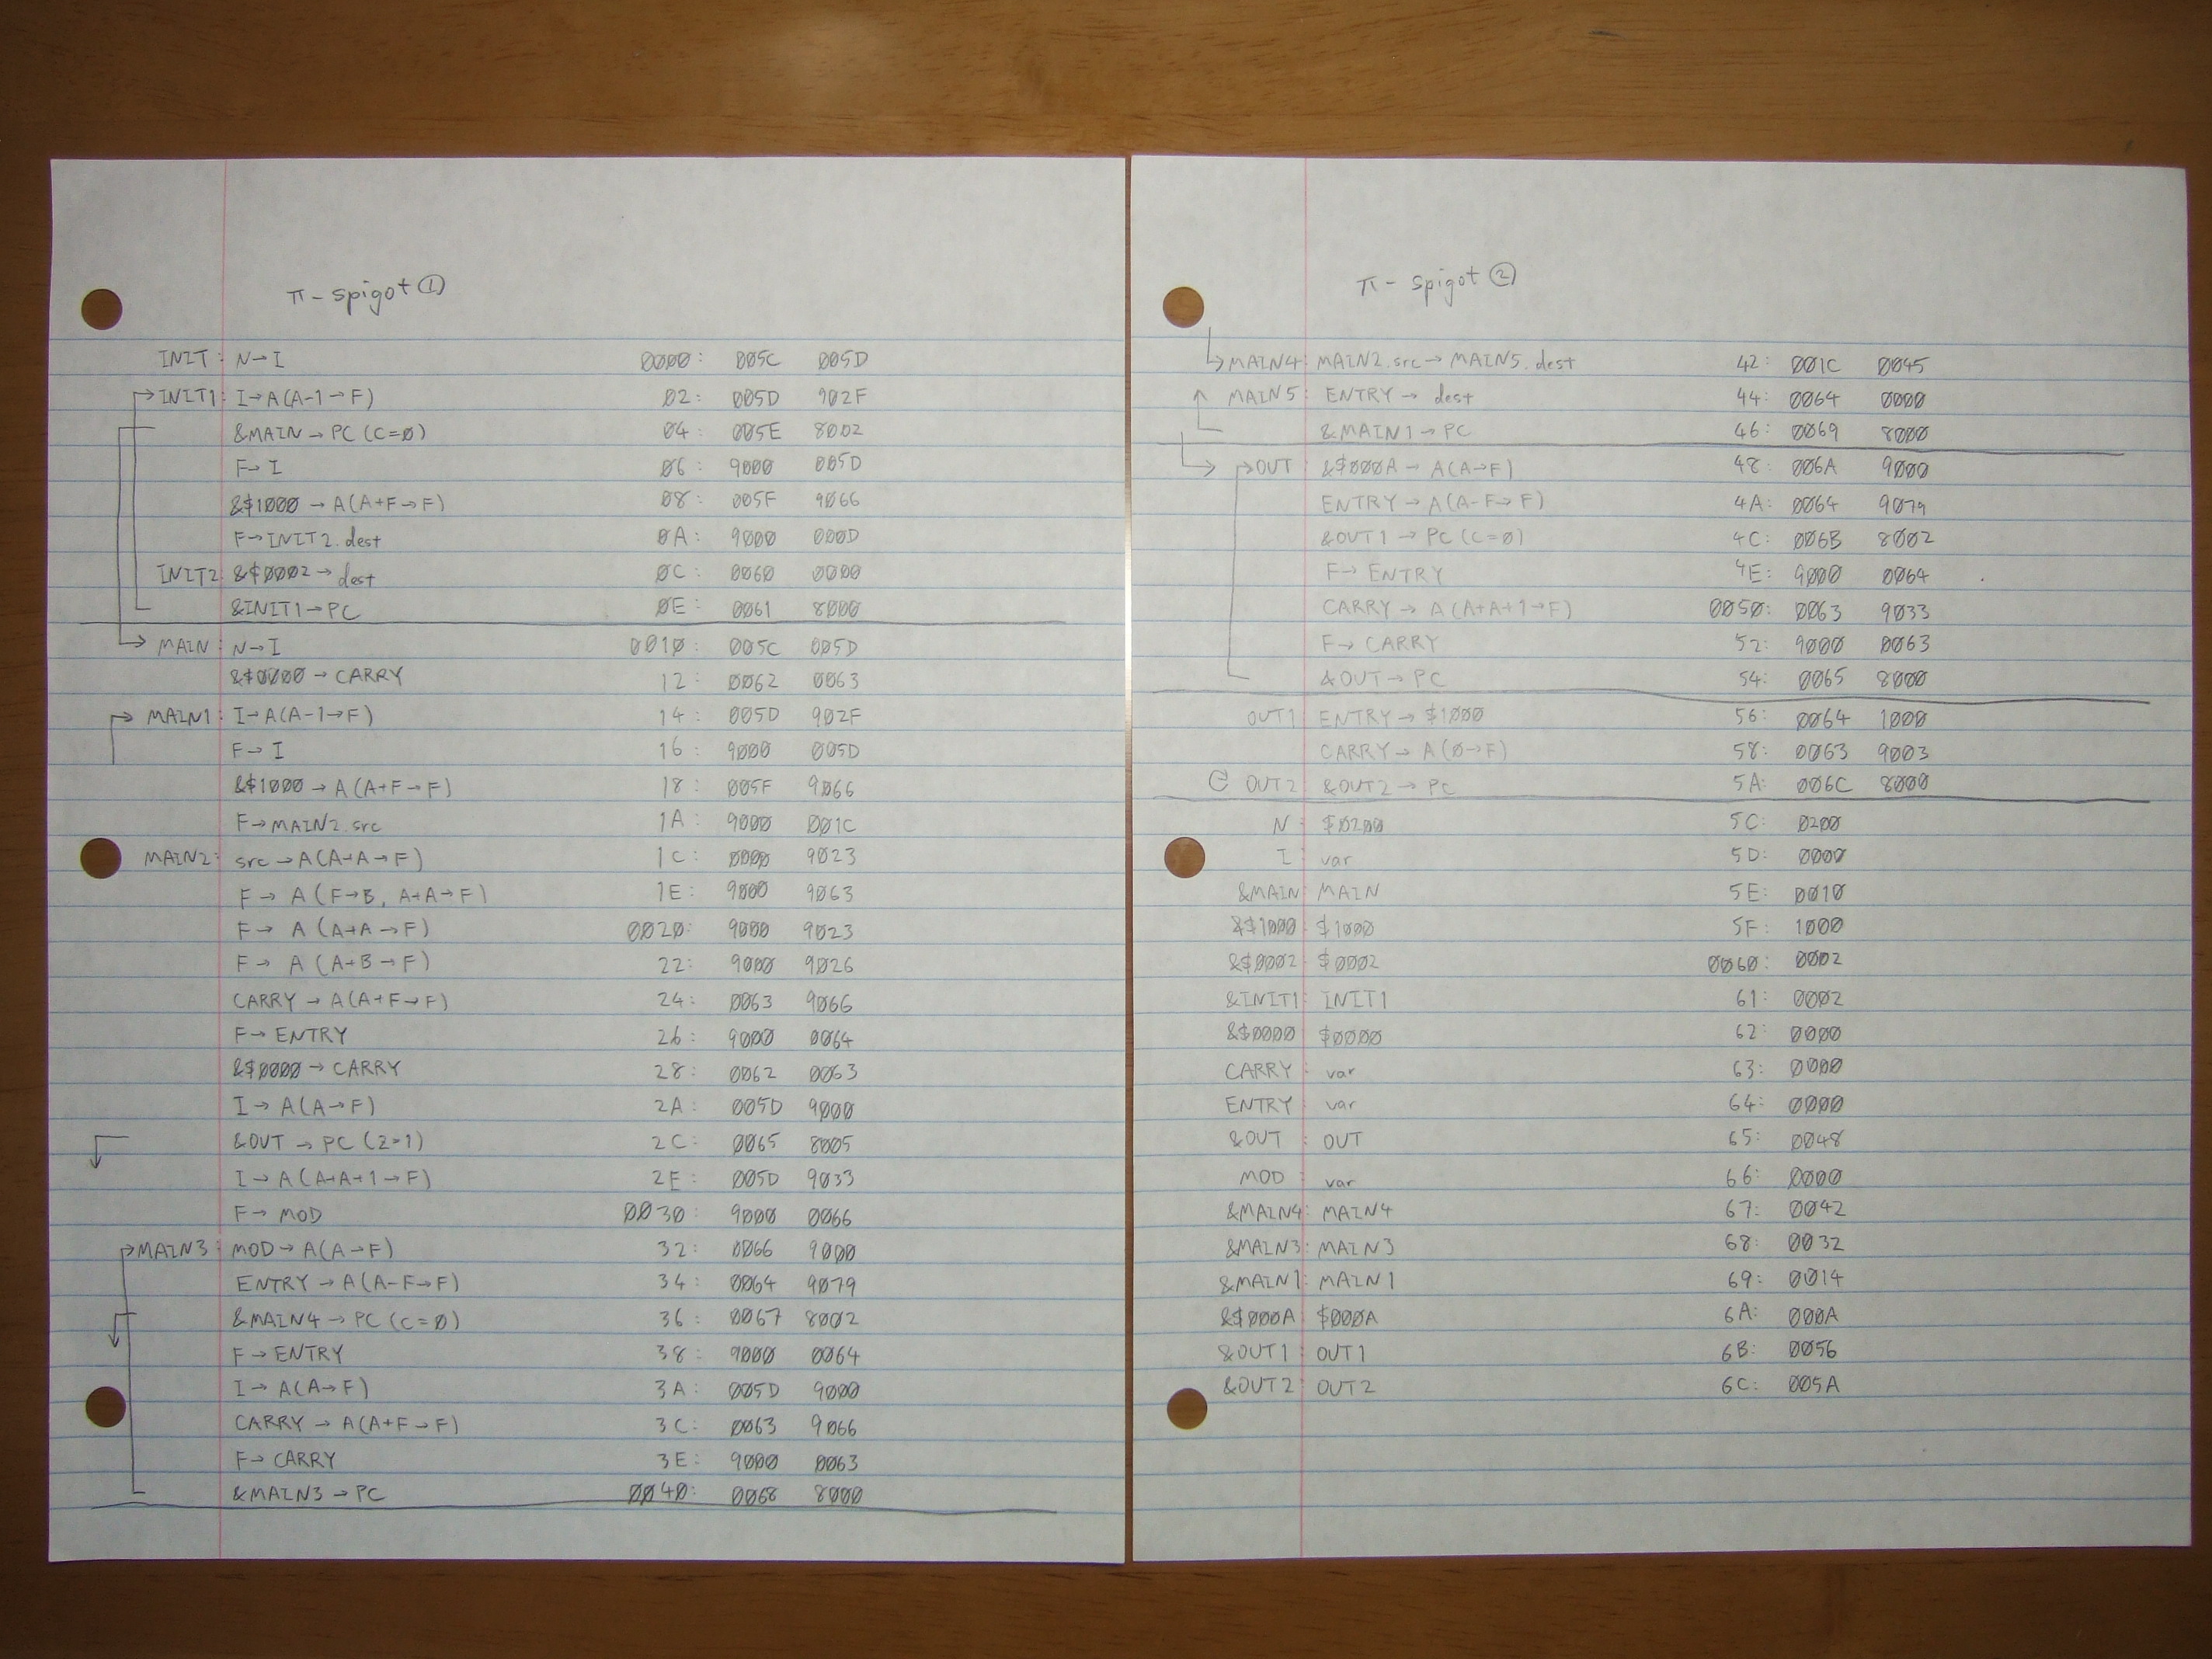 π-spigot ①
INIT: N→I 0000: 005C 005D
INIT1: I→A(A-1→F) 02: 005D 902F
&MAIN→PC(C=0) 04: 005E 8002
F→I 06: 9000 005D
&$1000→A(A+F→F) 08: 005F 9066
F→INIT2.dest 0A: 9000 000D
INIT2: &$0002→dest 0C: 0060 0000
&INIT1→PC 0E: 0061 8000
MAIN: N→I 0010: 005C 005D
&$0000→CARRY 12: 0062 0063
MAIN1: I→A(A-1→F) 14: 005D 902F
F→I 16: 9000 005D
&$1000→A(A+F→F) 18: 005F 9066
F→MAIN2.src 1A: 9000 001C
MAIN2: src→A(A+A→F) 1C: 0000 9023
F→A(F→B, A+A→F) 1E: 9000 9063
F→A(A+A→F) 0020: 9000 9023
F→A(A+B→F) 22: 9000 9026
CARRY→A(A+F→F) 24: 0063 9066
F→ENTRY 26: 9000 0064
&$0000→CARRY 28: 0062 0063
I→A(A→F) 2A: 005D 9000
&OUT→PC(Z=1) 2C: 0065 8005
I→A(A+A+1→F) 2E: 005D 9033
F→MOD 0030: 9000 0066
MAIN3: MOD→A(A→F) 32: 0066 9000
ENTRY→A(A-F→F) 34: 0064 9079
&MAIN4→PC(C=0) 36: 0067 8002
F→ENTRY 38: 9000 0064
I→A(A→F) 3A: 005D 9000
CARRY→A(A+F→F) 3C: 0063 9066
F→CARRY 3E: 9000 0063
&MAIN3→PC 0040: 0068 8000
π-spigot ②
MAIN4: MAIN2.src→MAIN5.dest 42: 001C 0045
MAIN5: ENTRY→dest 44: 0064 0000
&MAIN1→PC 46: 0069 8000
OUT: &$000A→A(A→F) 48: 006A 9000
ENTRY→A(A-F→F) 4A: 0064 9079
&OUT1→PC(C=0) 4C: 006B 8002
F→ENTRY 4E: 9000 0064
CARRY→A(A+A+1→F) 0050: 0063 9033
F→CARRY 52: 9000 0063
&OUT→PC 54: 0065 8000
OUT1: ENTRY→$1000 56: 0064 1000
CARRY→A(0→F) 58: 0063 9003
OUT2: &OUT2→PC 5A: 006C 8000
N: $0200 5C: 0200
I: var 5D: 0000
&MAIN: MAIN 5E: 0010
&$1000: $1000 5F: 1000
&$0002: $0002 0060: 0002
&INIT1: INIT1 61: 0002
&$0000: $0000 62: 0000
CARRY: var 63: 0000
ENTRY: var 64: 0000
&OUT: OUT 65: 0048
MOD: var 66: 0000
&MAIN4: MAIN4 67: 0042
&MAIN3: MAIN3 68: 0032
&MAIN1: MAIN1 69: 0014
&$000A: $000A 6A: 000A
&OUT1: OUT1 6B: 0056
&OUT2: OUT2 6C: 005A